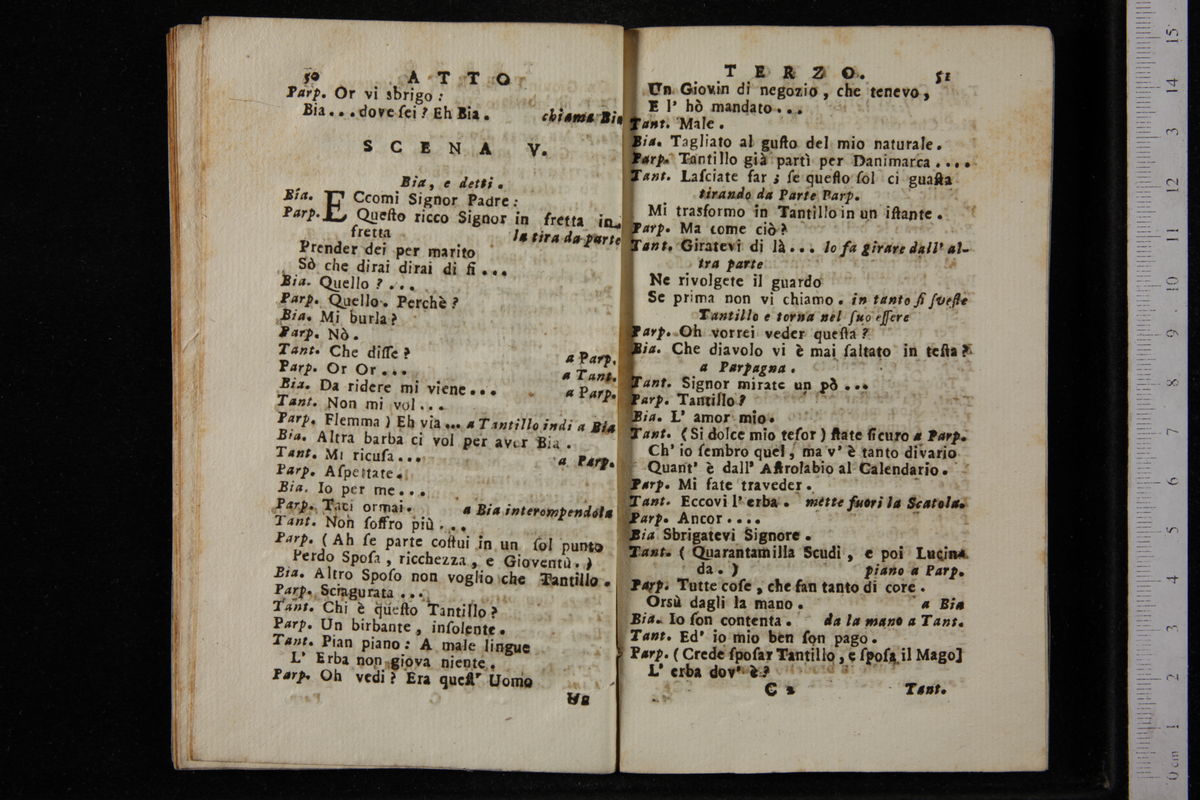 50 ATTO
Parp. Or vi sbrigo :
Bia... dove ſei ? Eh Bia. chiama Bia
SCENA V.
Bia, e detti.
Bia. ECcomi Signor Padre :
Parp. Queſto ricco Signor in fretta in
fretta la tira da parte
Prender dei per marito
Sò che dirai dirai di ſi ...
Bia. Quello ? ...
Parp. Quello. Perchè ?
Bia. Mi burla ?
Parp. Nò.
Tant. Che diſſe ? a Parp.
Parp. Or Or ... a Tant.
Bia. Da ridere mi viene ... a Parp.
Tant. Non mi vol ...
Parp. Flemma ) Eh via ... a Tantillo indi a Bia
Bia. Altra barba ci vol per aver Bia.
Tant. Mi ricuſa ... a Parp.
Parp. Aſpettate.
Bia. Io per me ...
Parp. Taci ormai. a Bia interompendola
Tant. Non ſoffro più ...
Parp. ( Ah ſe parte coſtui in un ſol punto
Perdo Spoſa , ricchezza , e Gioventù. )
Bia. Altro Spoſo non voglio che Tantillo.
Parp. Sciagurata ...
Tant. Chi è queſto Tantillo ?
Parp. Un birbante , inſolente.
Tant. Pian piano : A male lingue
L' Erba non giova niente.
Parp. Oh vedi ? Era queſt' Uomo
Un
TERZO. 51
Un Giovin di negozio , che tenevo ,
E l' hò mandato ...
Tant. Male.
Bia. Tagliato al guſto del mio naturale.
Parp. Tantillo già partì per Danimarca ....
Tant. Laſciate far ; ſe queſto ſol ci guaſta
tirando da Parte Parp.
Mi trasformo in Tantillo in un iſtante.
Parp. Ma come ciò ?
Tant. Giratevi di là ... lo fa girare dall' al-
tra parte
Ne rivolgete il guardo
Se prima non vi chiamo. in tanto ſi ſveſte
Tantillo e torna nel ſuo eſſere
Parp. Oh vorrei veder queſta ?
Bia. Che diavolo vi è mai ſaltato in teſta ?
a Parpagna.
Tant. Signor mirate un pò ...
Parp. Tantillo ?
Bia. L' amor mio.
Tant. ( Si dolce mio teſor ) ſtate ſicuro a Parp.
Ch' io ſembro quel , ma v' è tanto divario
Quant' è dall' Aſtrolabio al Calendario.
Parp. Mi fate traveder.
Tant. Eccovi l' erba. mette fuori la Scatola.
Parp. Ancor ....
Bia Sbrigatevi Signore.
Tant. ( Quarantamilla Scudi , e poi Lucin-
da. ) piano a Parp.
Parp. Tutte coſe , che fan tanto di core.
Orsù dagli la mano. a Bia
Bia. Io ſon contenta. da la mano a Tant.
Tant. Ed' io mio ben ſon pago.
Parp. ( Crede ſpoſar Tantillo , e ſpoſa il Mago]
L' erba dov' è ?
C 2 Tant.
0 cm 1 2 3 4 5 6 7 8 9 10 11 12 13 14 15